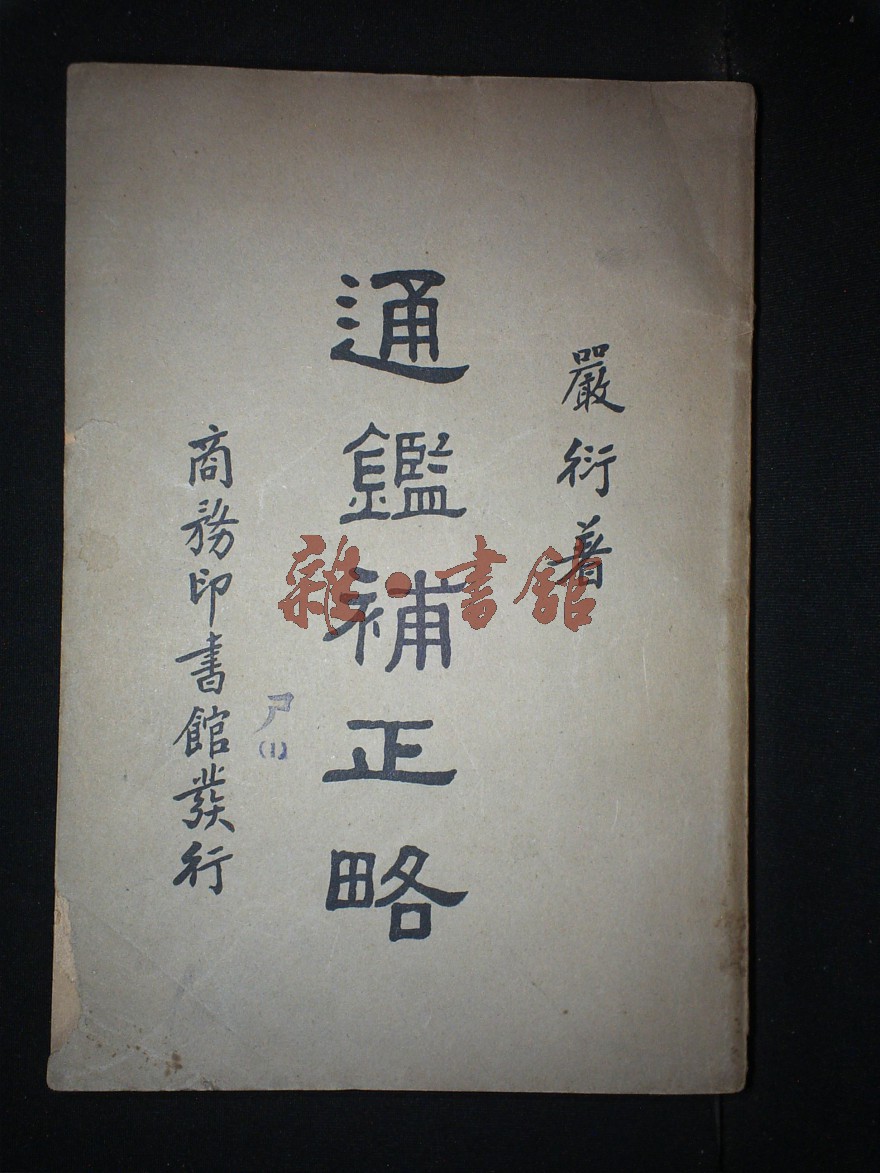 嚴衍著
通鑑補正略
商務印書館發行
(1)
雜·書館